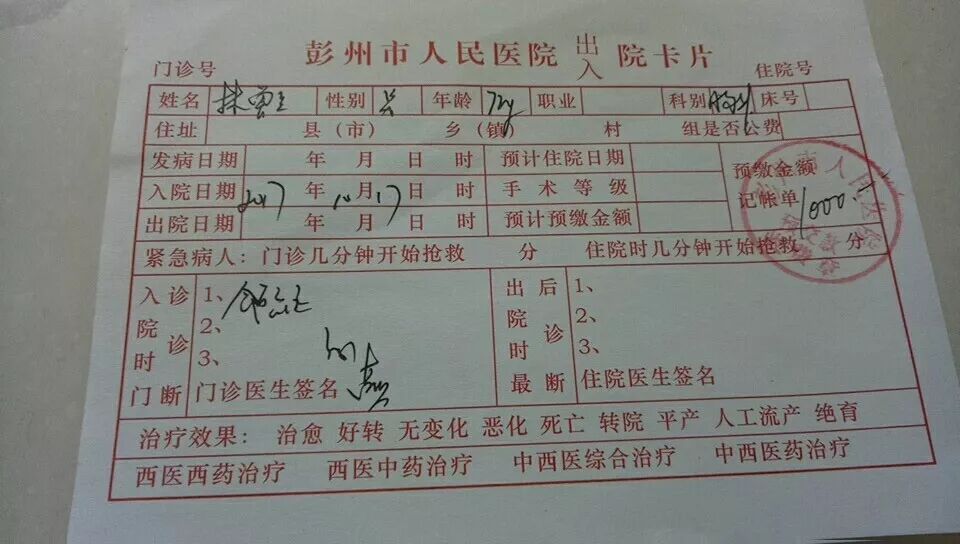 彭州市人民医院出入院卡片
门诊号 住院号
姓名 性别 年龄 72y 职业 科别 床号
住址 县(市) 乡(镇) 村 组是否公费
发病日期 年 月 日 时 预计住院日期 预缴金额
入院日期 2017 年 10 月 17 日 时 手术等级 记帐单 1000.-
出院日期 年 月 日 时 预计预缴金额
紧急病人:门诊几分钟开始抢救 分 住院时几分钟开始抢救 分
入院时门诊诊断 1、
2、
3、
门诊医生签名
出院时最后诊断 1、
2、
3、
住院医生签名
治疗效果: 治愈 好转 无变化 恶化 死亡 转院 平产 人工流产 绝育
西医西药治疗 西医中药治疗 中西医综合治疗 中西医药治疗